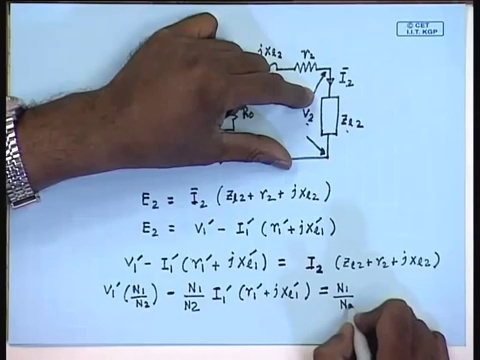 © CET
I.I.T. KGP
jxl2 r2
Ī2
R0 V2 Zl2
E2 = Ī2 (Zl2 + r2 + jxl2)
E2 = V1' - I1' (r1' + jxl1')
V1' - I1' (r1' + jxl1') = I2 (Zl2 + r2 + jxl2)
V1' (N1/N2) - N1/N2 I1' (r1' + jxl1') = N1/N2